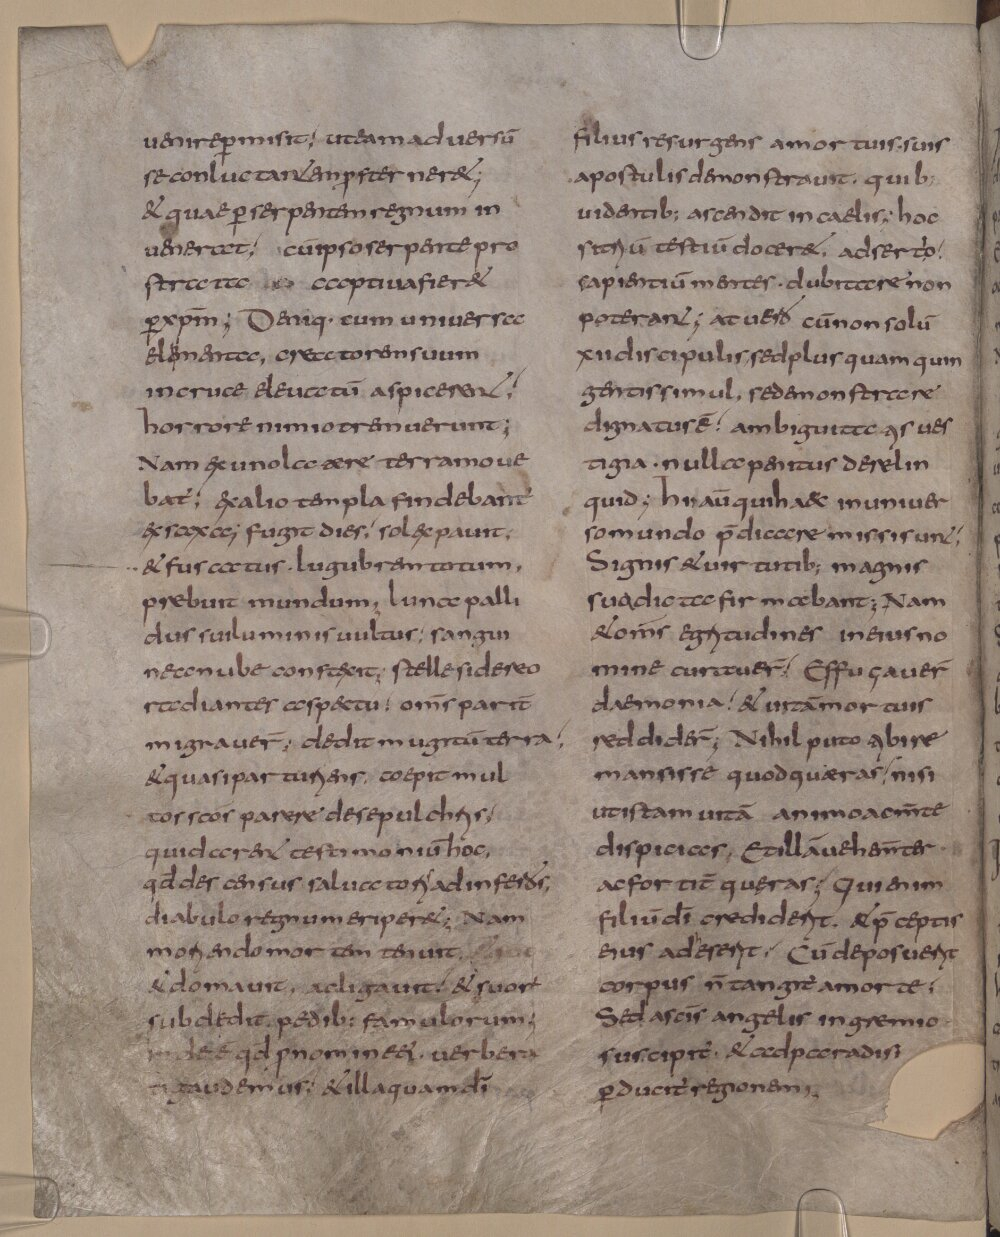 uenirepmisit; uteam aduersū
se conluctar& empster ner&;
& quae p serpentem regnum in
uenerat; cūipso serpente pro
strata captiua fier&
p xpm; Deniq. cum uniuersa
elementa, creatorem suum
in cruce eleuatū aspicer&;
horrore nimio tremuerunt;
Nam ex uno latere terra moue
bat; ex alio templa findebant
& saxa; fugit dies; sol expauit,
& fuscatus. lugubrem totum,
prebuit mundum; lunae palli
dus sui luminis uultus; sangui
nea nube contexit; stelle sidereo
radiantes aspectu; oms parit
migrauer; dedit mugitū terra;
& quasi parturiens, coepit mul
tos scos parere de sepulchris;
qui darent testimoniū hoc,
qd descensus saluatori ad inferos,
diabulo regnum eriper&; Nam
moriendo mortem tenuit,
& domauit, ac ligauit; & suor
subdedit, pedib; famulorum;
inde & qd p nomine ei. uerbera
ti gaudemus; & illa quam di
filius resurgens a mortuis. suis
apostulis demonstrauit. quib;
uidentib; ascendit in caelis; hoc
ster ū testiū docer&, adserto;
sapientiū mentes. dubitare non
poteran&; at uero cū non solū
xii discipulis, sed plus quam quin
gentis simul, se demonstrare
dignatus ē; ambiguitatis ues
tigia. nulla penitus derelin
quid; hi aū qui haec in uniuer
so mundo pdicare missi sun&;
Signis & uirtutib; magnis
sua dicta firmabant; Nam
& oms egritudines in eius no
mine curauer; Effugauer
daemonia; & uitā mortuis
reddider; Nihil puto abire
mansisse quod queras; nisi
ut istam uitā animo ac mte
dispicias, Et illā uehemter
ac fortit queras; Qui enim
filiū di crediderit. & pceptis
eius adeserit; Cū deposuerit
corpus n tangit a morte;
Sed a scis angelis in gremio
suscipit. & ad paradisi
pducit regionem;